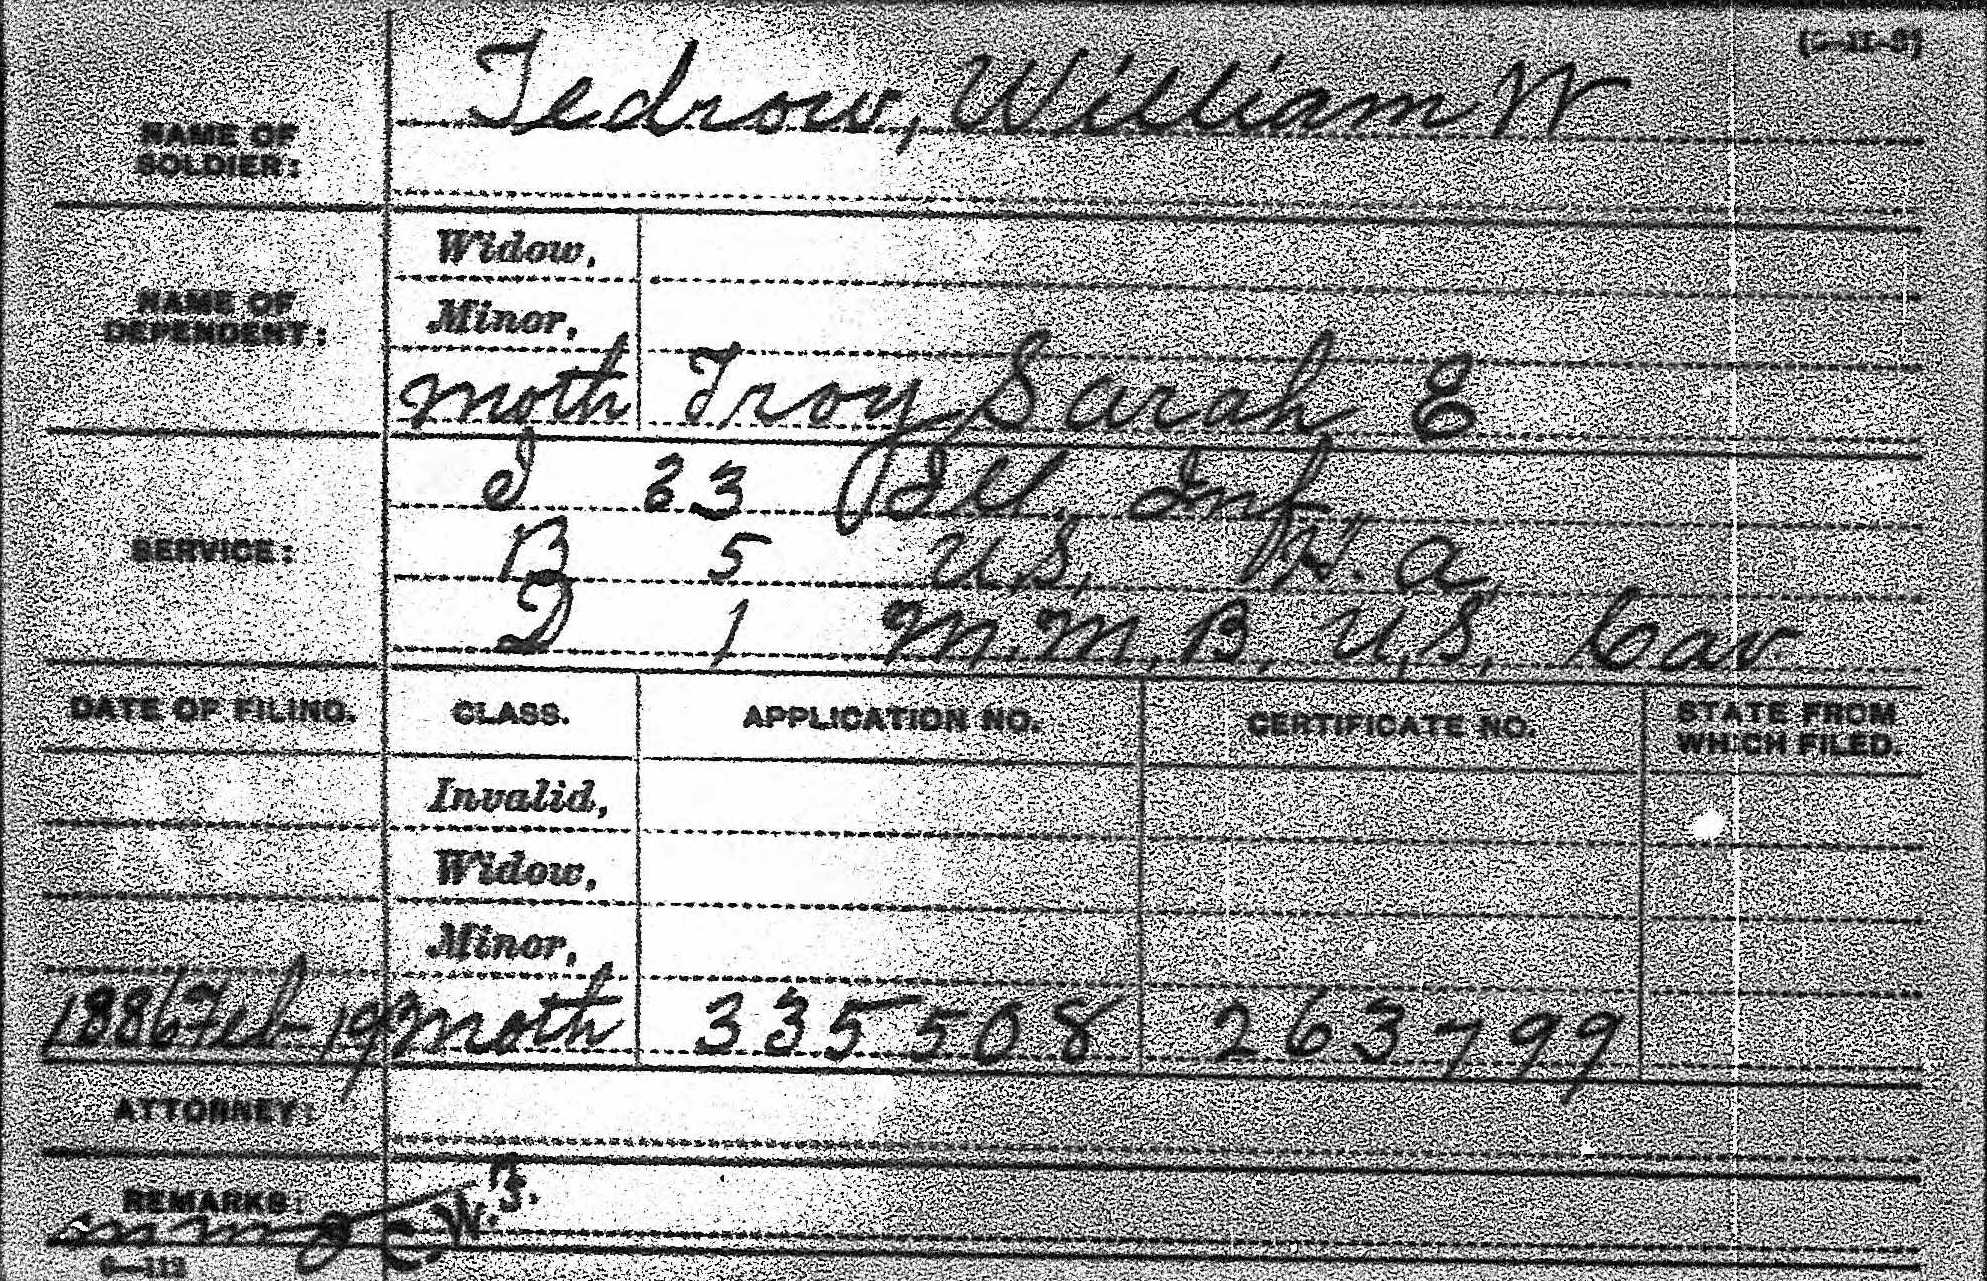 Tedrow, William W
NAME OF
SOLDIER:
Widow,
NAME OF
DEPENDENT:
Minor,
moth Troy Sarah E
I 33 Ill. Inf.
SERVICE:
B 5 U.S. H. a.
D 1 M.M.B. U.S. Cav
DATE OF FILING. CLASS. APPLICATION NO. CERTIFICATE NO. STATE FROM
WHICH FILED.
Invalid,
Widow,
Minor,
1886 Feb 19 moth 335508 263799
ATTORNEY:
REMARKS:
C.W.